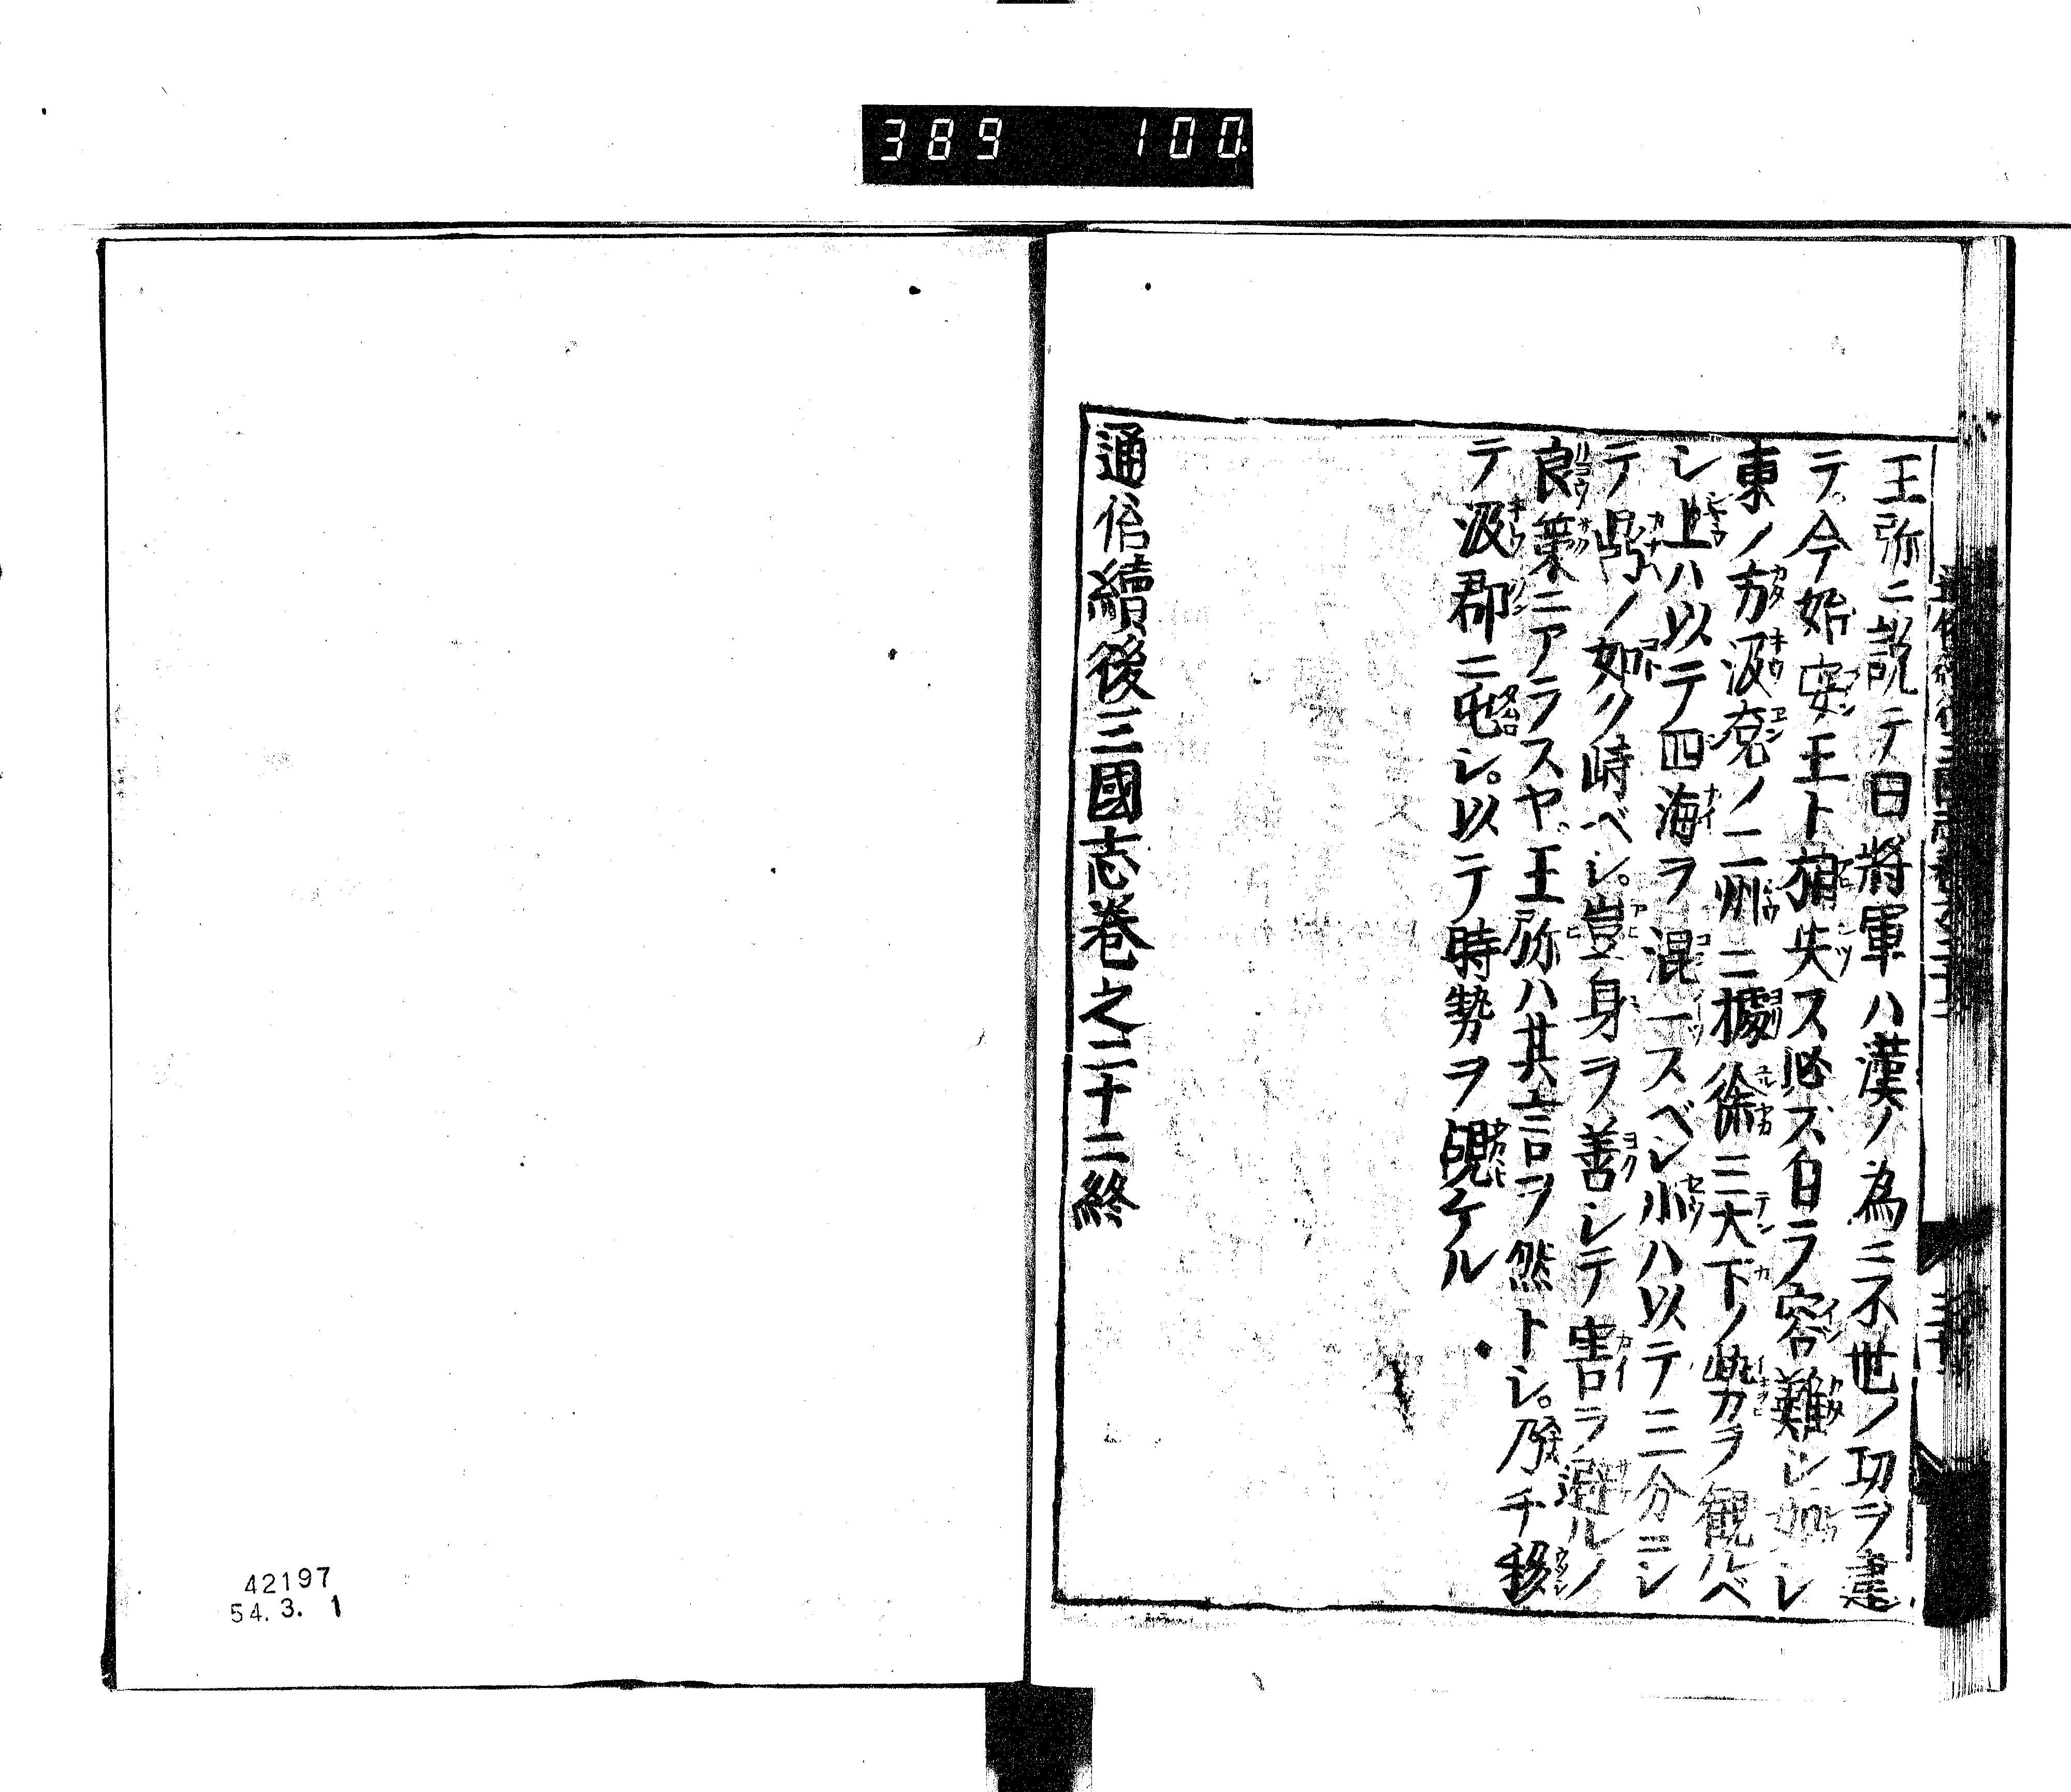 389 100.
王弥ニ説テ曰將軍ハ漢ノ為ニ不世ノ功ヲ建
テ。今始安王ト相失ス必ズ自ラ容難シ如シ
東ノ方汲兗ノ二州ニ據徐ニ天下ノ勢ヲ観ルベ
シ上ハ以テ四海ヲ混一スベシ小ハ以テ三分ニシ
テ鼎ノ如ク峙ベシ。豈身ヲ善シテ害ヲ避ルノ
良策ニアラスヤ。王弥ハ其言ヲ然トシ。乃チ移
テ汲郡ニ屯シ。以テ時勢ヲ覘ケル
通俗續後三國志巻之二十二終
42197
54.3.1